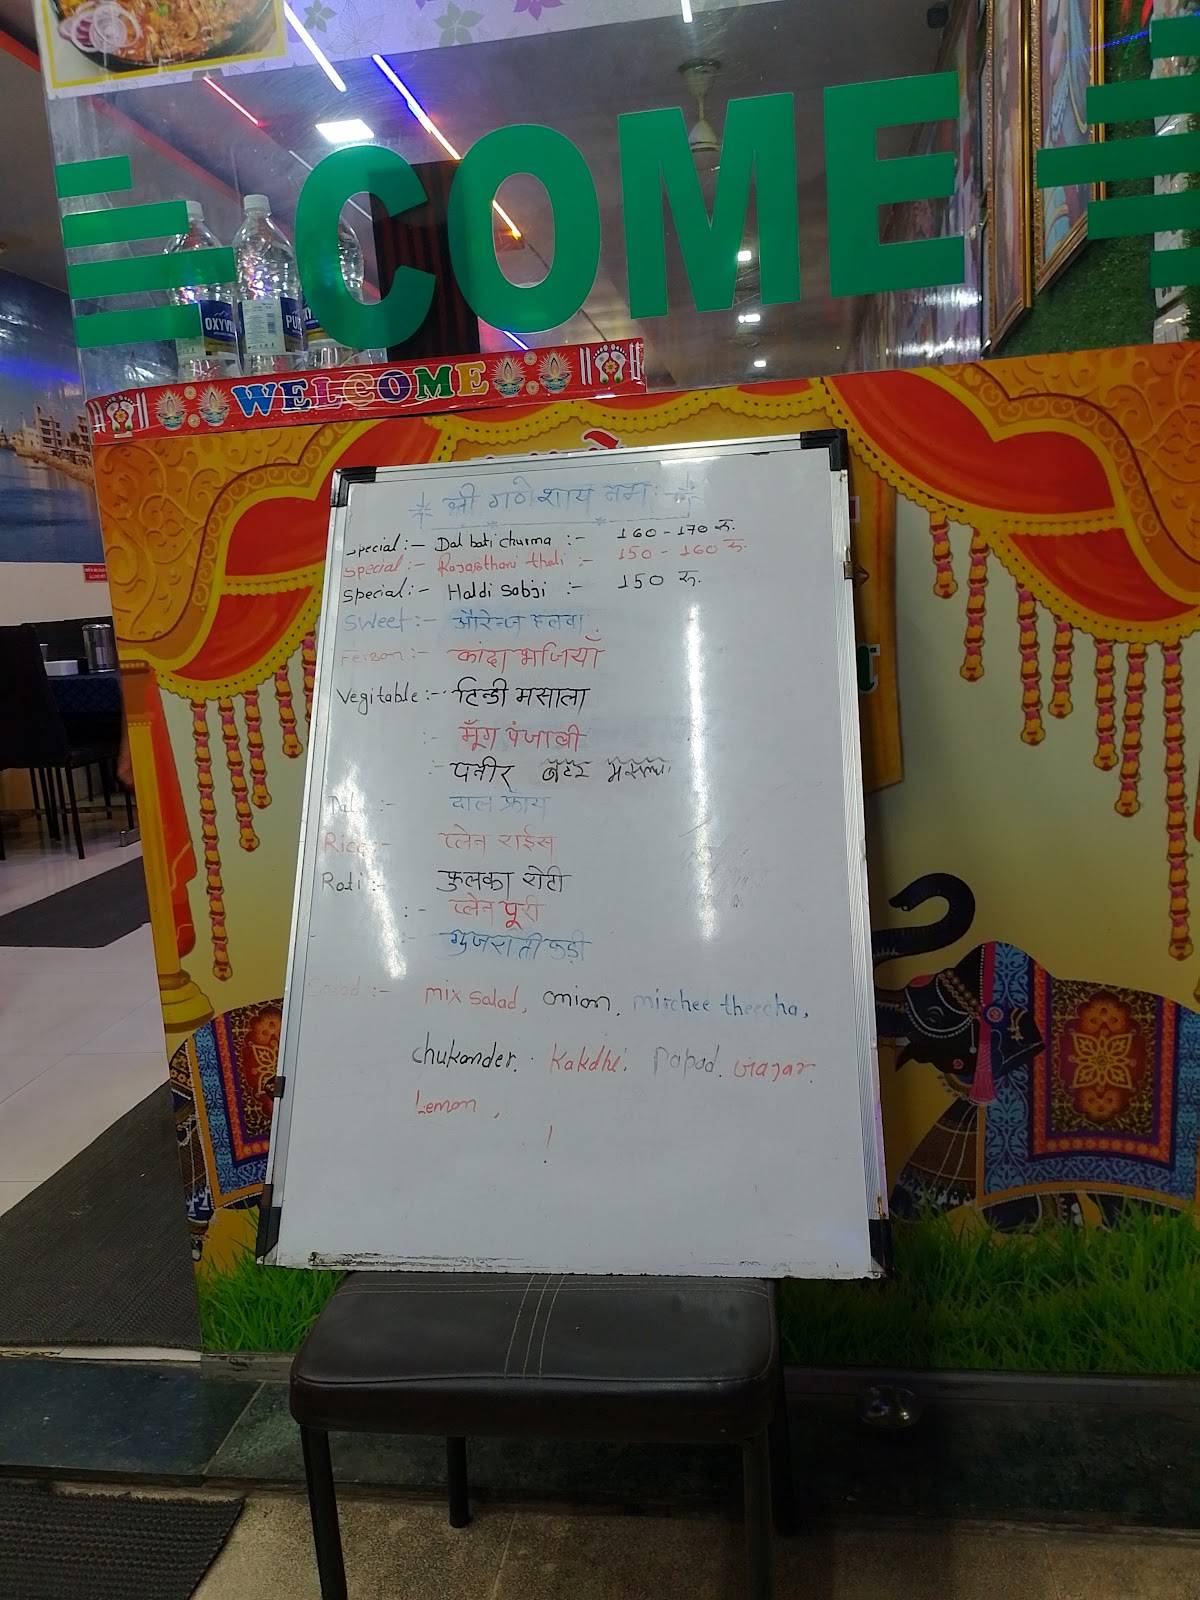 COME
OXYV
PU
WELCOME
श्री गणेशाय नमः
Special:- Dal bati churma :- 160-170 रु.
Special:- Rajasthani thali :- 150-160 रु.
Special:- Haldi Sabji :- 150 रु.
Sweet:- औरेन्ज हलवा
Ferson:- कांदा भजियाँ
Vegitable:- टिन्डी मसाला
:- मूँग पंजाबी
:- पनीर बटर मसाला
Dal :- दाल फ्राय
Rice:- प्लेन राईस
Roti:- फुलका रोटी
:- प्लेन पूरी
:- गुजराती कड़ी
Salad:- mix salad, onion, mirchee theecha,
chukander. Kakdhi. Papad. Gajar.
Lemon,